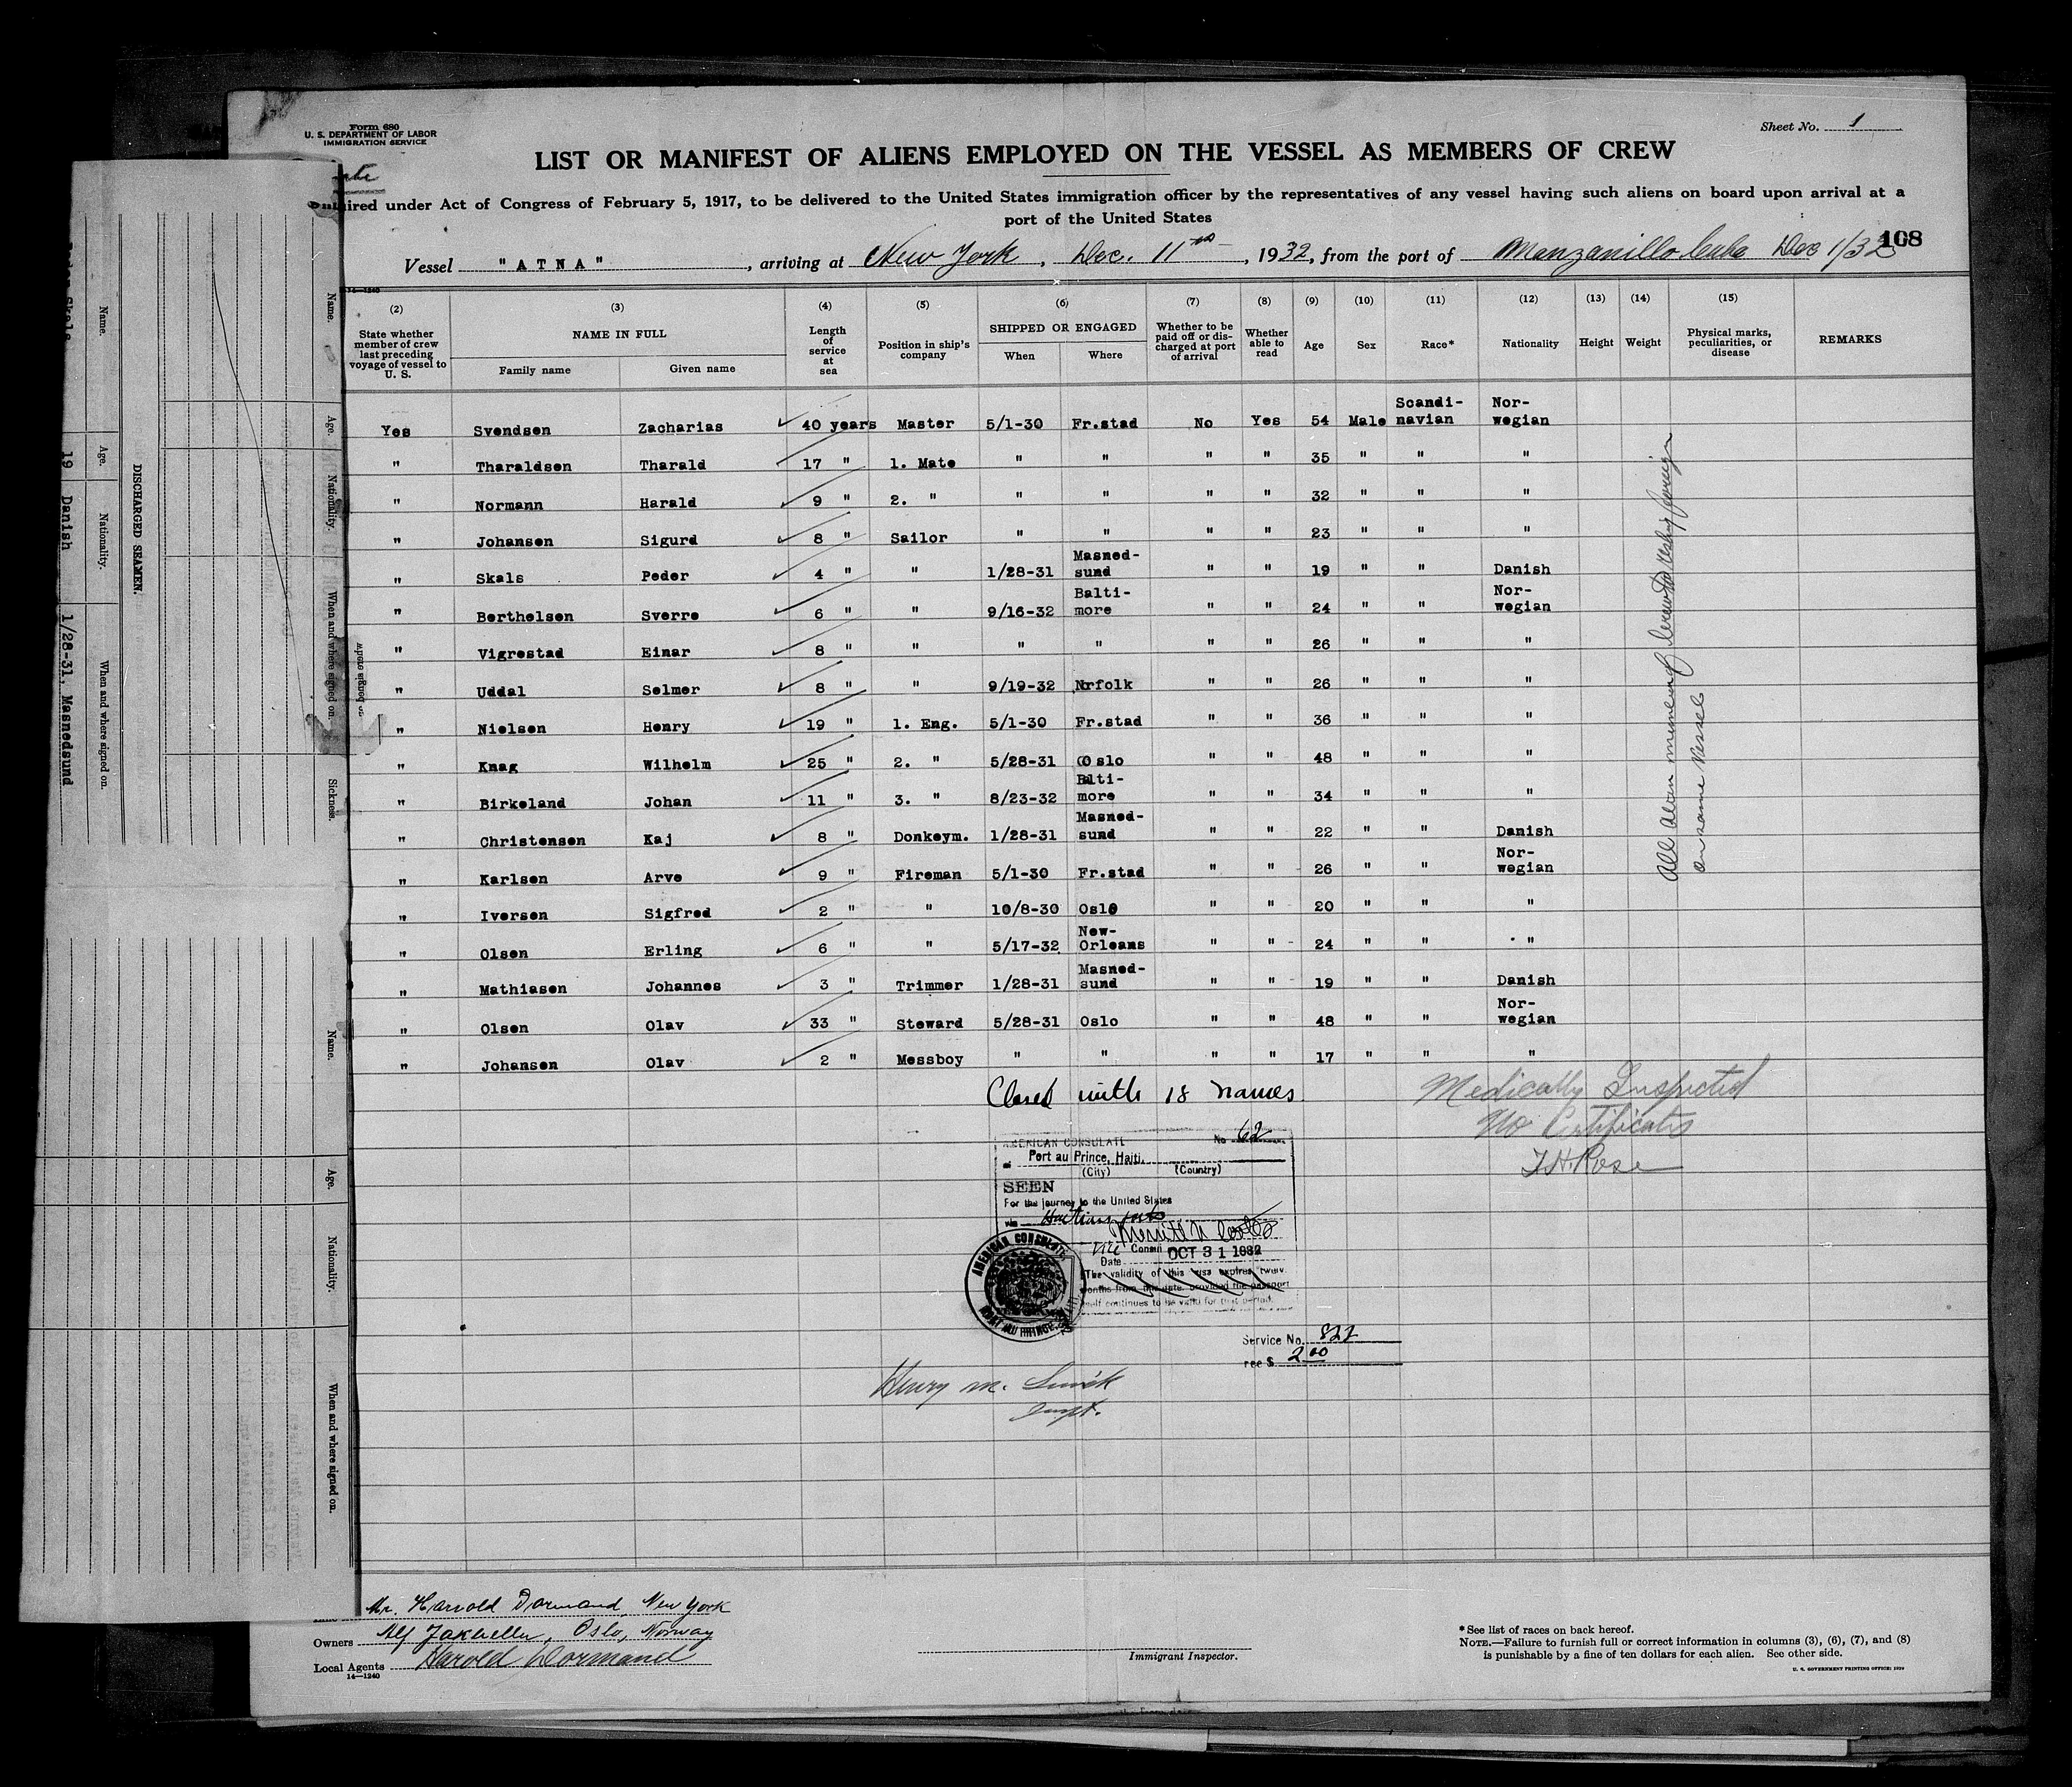 Form 680
U. S. DEPARTMENT OF LABOR
IMMIGRATION SERVICE
Sheet No. 1
LIST OR MANIFEST OF ALIENS EMPLOYED ON THE VESSEL AS MEMBERS OF CREW
under Act of Congress of February 5, 1917, to be delivered to the United States immigration officer by the representatives of any vessel having such aliens on board upon arrival at a
port of the United States
Vessel "ATNA", arriving at New York, Dec. 11th, 1932, from the port of Manzanillo Cuba Dec 1/32
108
14—1240
(2) (3) (4) (5) (6) (7) (8) (9) (10) (11) (12) (13) (14) (15)
State whether member of crew last preceding voyage of vessel to U. S.
NAME IN FULL
Family name Given name
Length of service at sea
Position in ship's company
SHIPPED OR ENGAGED
When Where
Whether to be paid off or discharged at port of arrival
Whether able to read
Age Sex Race* Nationality Height Weight
Physical marks, peculiarities, or disease
REMARKS
Yes Svendsen Zacharias 40 years Master 5/1-30 Fr.stad No Yes 54 Male Scandi-navian Nor-wegian
" Tharaldsen Tharald 17 " 1. Mate " " " " 35 " " "
" Normann Harald 9 " 2. " " " " " 32 " " "
" Johansen Sigurd 8 " Sailor " " " " 23 " " "
" Skals Peder 4 " " 1/28-31 Masned-sund " " 19 " " Danish
" Berthelsen Sverre 6 " " 9/16-32 Balti-more " " 24 " " Nor-wegian
" Vigrestad Einar 8 " " " " " " 26 " " "
" Uddal Selmer 8 " " 9/19-32 Norfolk " " 26 " " "
" Nielsen Henry 19 " 1. Eng. 5/1-30 Fr.stad " " 36 " " "
" Knag Wilhelm 25 " 2. " 5/28-31 Oslo " " 48 " " "
" Birkeland Johan 11 " 3. " 8/23-32 Balti-more " " 34 " " "
" Christensen Kaj 8 " Donkeym. 1/28-31 Masned-sund " " 22 " " Danish
" Karlsen Arve 9 " Fireman 5/1-30 Fr.stad " " 26 " " Nor-wegian
" Iversen Sigfred 2 " " 10/8-30 Oslo " " 20 " " "
" Olsen Erling 6 " " 5/17-32 New-Orleans " " 24 " " "
" Mathiasen Johannes 3 " Trimmer 1/28-31 Masned-sund " " 19 " " Danish
" Olsen Olav 33 " Steward 5/28-31 Oslo " " 48 " " Nor-wegian
" Johansen Olav 2 " Messboy " " " " 17 " " "
on same Vessel
Closed with 18 names
Medically Inspected
No Certificates
AMERICAN CONSULATE No 62
at Port au Prince, Haiti.
(City) (Country)
SEEN
For the journey to the United States
via Haitian ports
Vice Consul
Date OCT 31 1932
The validity of this visa expires twelve
months from this date, provided the passport
itself continues to be valid for that period.
AMERICAN CONSULATE
PORT AU PRINCE, HAITI
Service No. 822
Fee $ 2.00
Henry M.
Mr. Harold Dormand, New York
Owners Oslo, Norway
Local Agents Harold Dormand
14—1240
Immigrant Inspector.
*See list of races on back hereof.
NOTE.—Failure to furnish full or correct information in columns (3), (6), (7), and (8)
is punishable by a fine of ten dollars for each alien. See other side.
U. S. GOVERNMENT PRINTING OFFICE: 1929
DISCHARGED SEAMEN.
Name. Age. Nationality. When and where signed on.
19 Danish 1/28-31, Masnedsund
Name. Age. Nationality. When and where signed on. Sickness.
Name. Age. Nationality. When and where signed on.